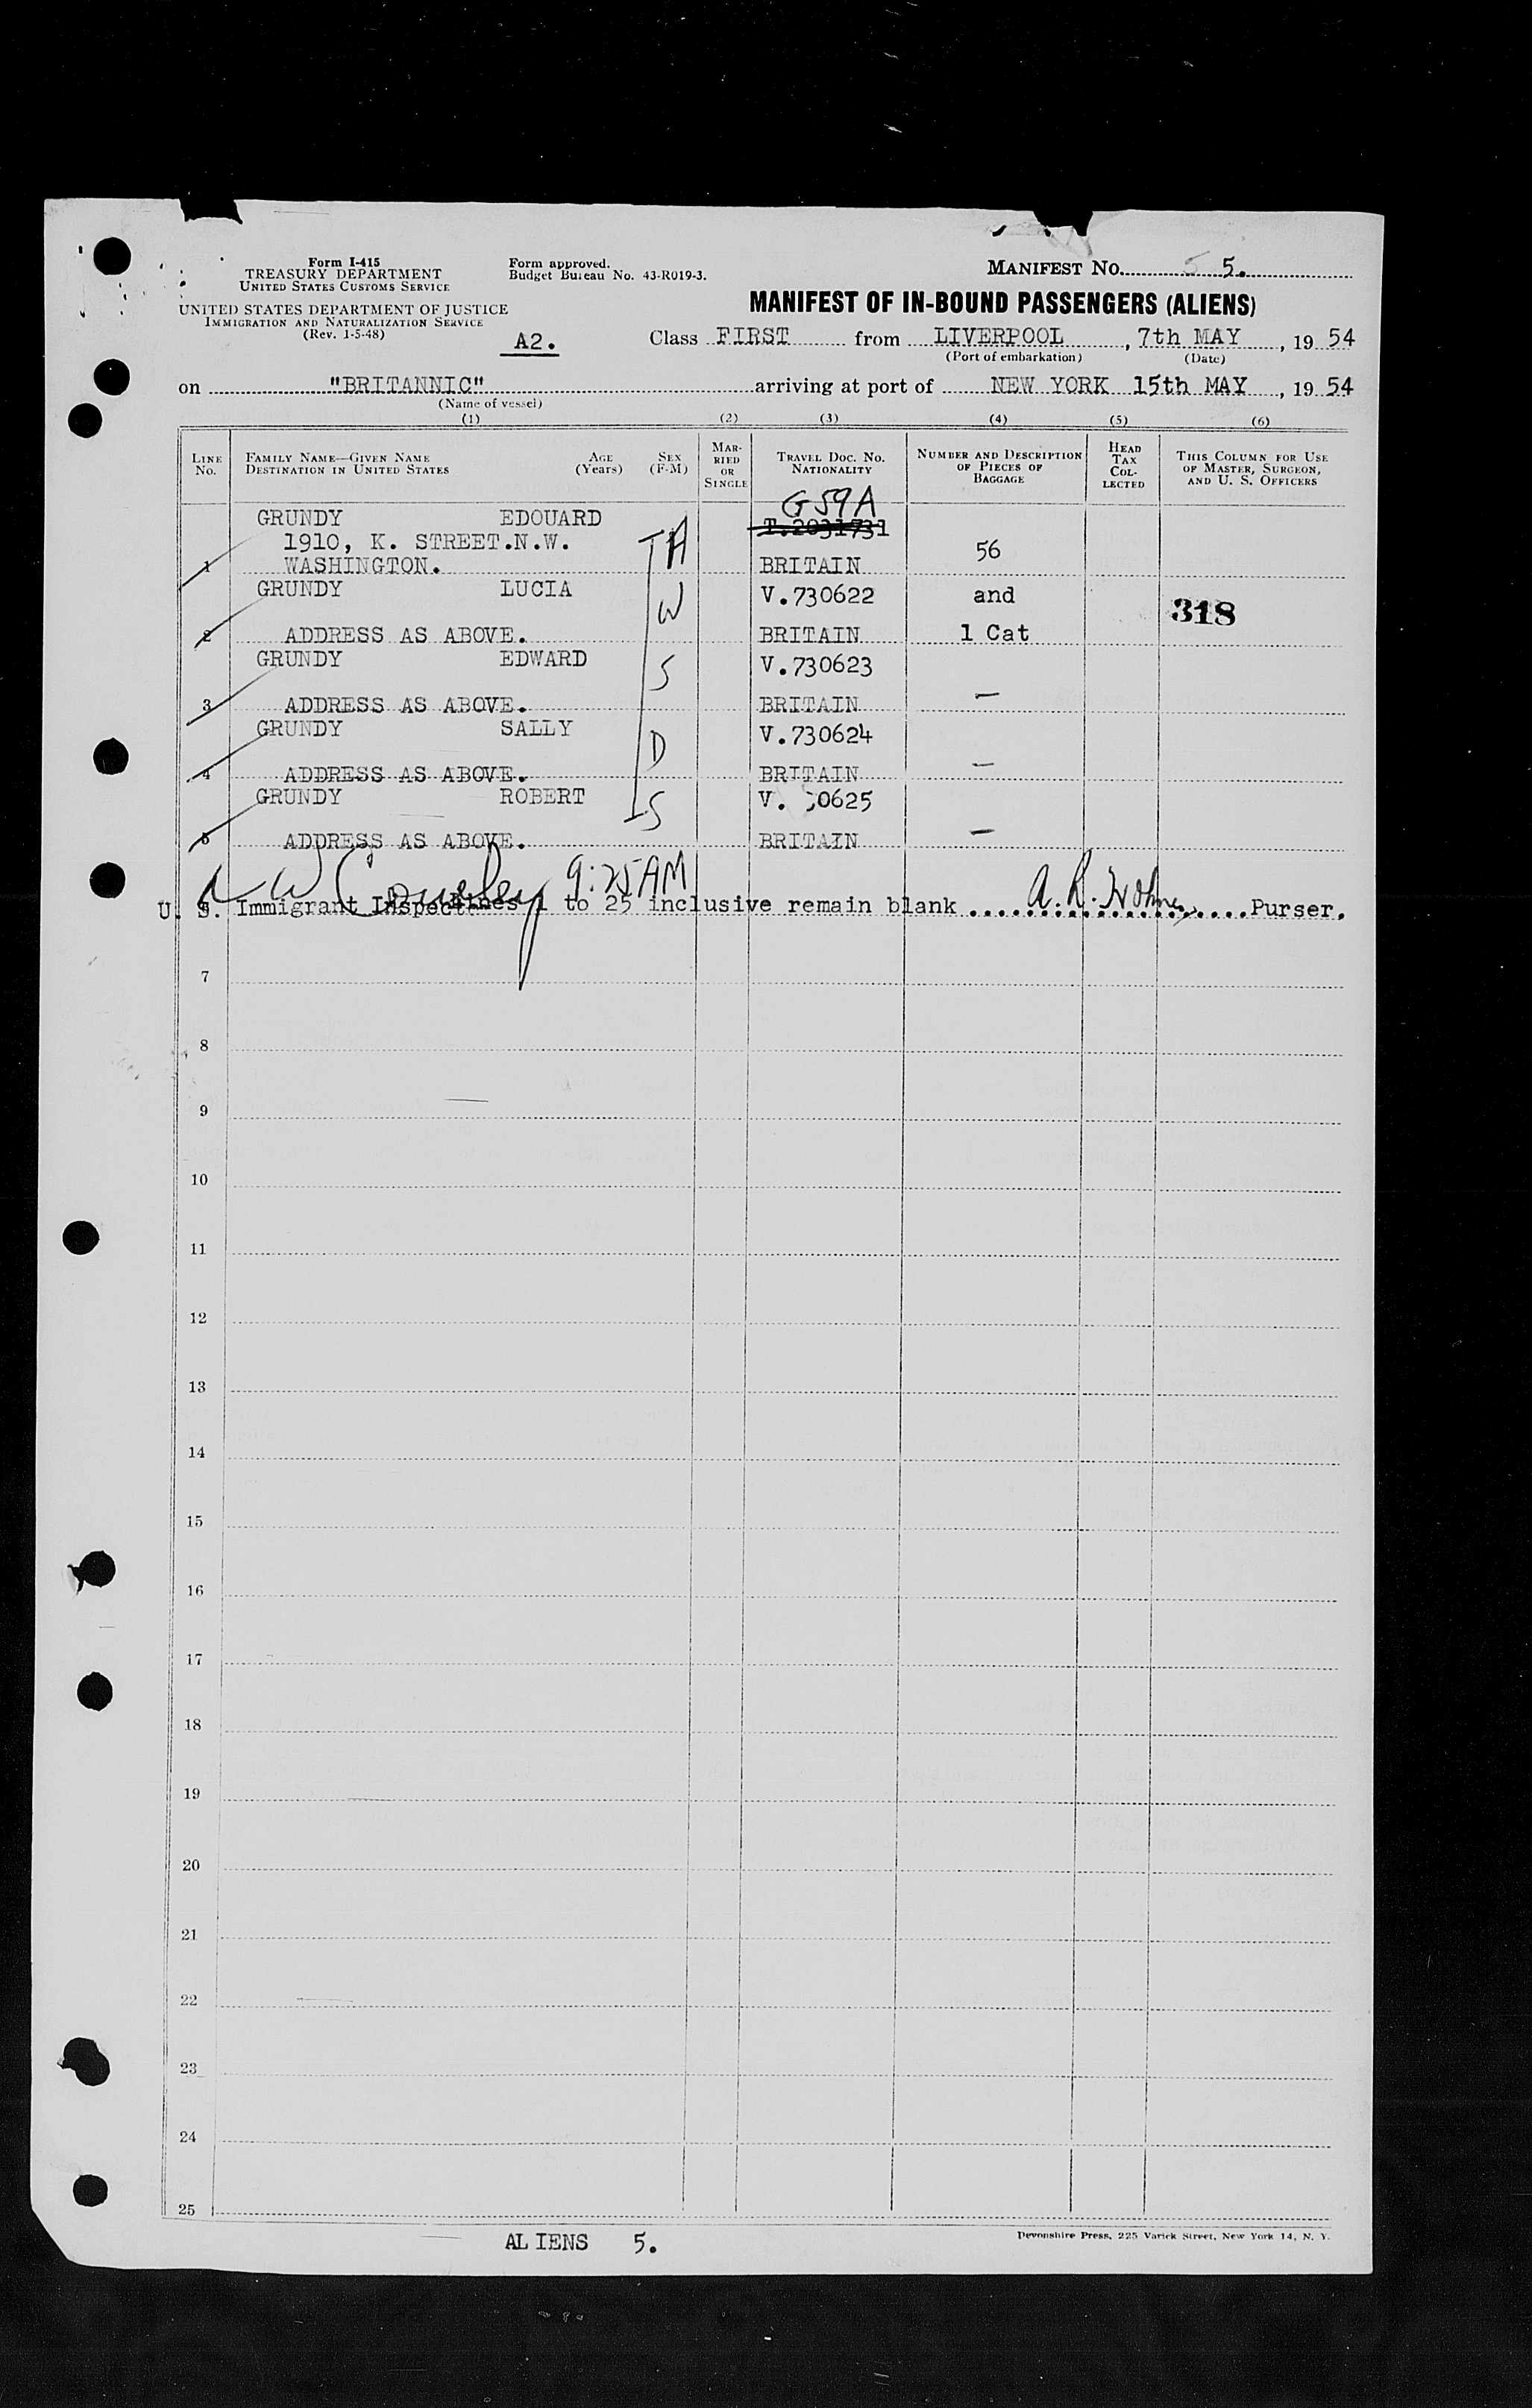 Form I-415
TREASURY DEPARTMENT
UNITED STATES CUSTOMS SERVICE
UNITED STATES DEPARTMENT OF JUSTICE
IMMIGRATION AND NATURALIZATION SERVICE
(Rev. 1-5-48)
Form approved.
Budget Bureau No. 43-R019-3.
MANIFEST NO. 5.
MANIFEST OF IN-BOUND PASSENGERS (ALIENS)
A2. Class FIRST from LIVERPOOL, 7th MAY, 19 54
(Port of embarkation) (Date)
on "BRITANNIC" arriving at port of NEW YORK 15th MAY, 19 54
(Name of vessel)
(1) (2) (3) (4) (5) (6)
LINE No.
FAMILY NAME—GIVEN NAME
DESTINATION IN UNITED STATES
AGE (Years)
SEX (F-M)
MARRIED OR SINGLE
TRAVEL DOC. NO.
NATIONALITY
NUMBER AND DESCRIPTION OF PIECES OF BAGGAGE
HEAD TAX COLLECTED
THIS COLUMN FOR USE OF MASTER, SURGEON, AND U. S. OFFICERS
G59A
GRUNDY EDOUARD T.2031731
1910, K. STREET.N.W. 56
1 WASHINGTON. BRITAIN
GRUNDY LUCIA W V.730622 and
318
2 ADDRESS AS ABOVE. BRITAIN 1 Cat
GRUNDY EDWARD S V.730623
3 ADDRESS AS ABOVE. BRITAIN —
GRUNDY SALLY D V.730624
4 ADDRESS AS ABOVE. BRITAIN —
GRUNDY ROBERT S V. 0625
5 ADDRESS AS ABOVE. BRITAIN —
9:25 AM
U. S. Immigrant Inspect Lines 1 to 25 inclusive remain blank A. R. Purser.
7
8
9
10
11
12
13
14
15
16
17
18
19
20
21
22
23
24
25
ALIENS 5.
Devonshire Press, 225 Varick Street, New York 14, N. Y.